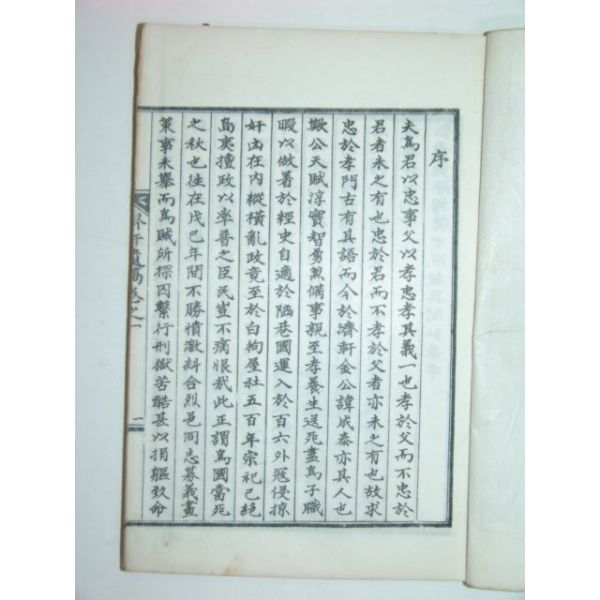 序
夫爲君以忠事父以孝忠孝其義一也孝於父而不忠於
君者未之有也忠於君而不孝於父者亦未之有也故求
忠於孝門古有其語而今於濟軒金公諱成泰亦其人也
歟公天賦淳實智勇兼備事親至孝養生送死盡爲子職
暇以做署於經史自適於陋巷國運入於百六外冦侵掠
奸凶在內縱橫亂政竟至於白狗屋社五百年宗祀已絕
島夷擅政以率普之臣民豈不痛恨哉此正謂爲國當死
之秋也徃在戊己年間不勝憤激糾合烈邑同志募義晝
策事未擧而爲賊所探因繫行刑獄苦酷甚以捐軀致命
軒遺稿卷之一
一